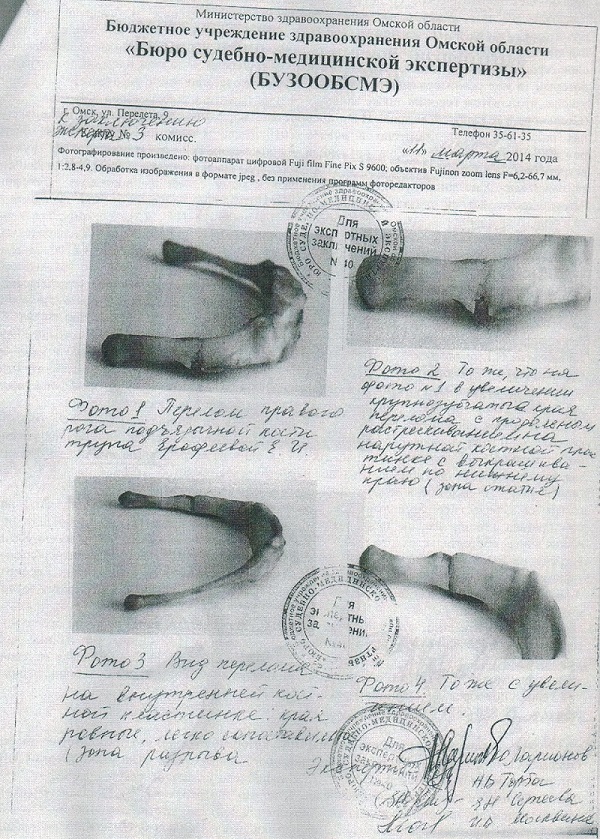 Министерство здравоохранения Омской области
Бюджетное учреждение здравоохранения Омской области
«Бюро судебно-медицинской экспертизы»
(БУЗООБСМЭ)
г. Омск, ул. Перелета, 9
Телефон 35-61-35
к заключению
эксперта № 3 комисс.
«11» марта 2014 года
Фотографирование произведено: фотоаппарат цифровой Fuji film Fine Pix S 9600; объектив Fujinon zoom lens F=6,2-66,7 мм,
1:2,8-4,9. Обработка изображения в формате jpeg , без применения программ фоторедакторов
Для
экспертных
заключений
№40
Фото 1 Перелом правого
рога подъязычной кости
трупа Ерофеевой Е. И
Фото 2 То же, что на
фото №1 в увеличении
крупнозубчатые края
перелома с продольным
растрескиванием на
наружной костной плас
тинке с выкрашива-
нием по нижнему
краю (зона сжатия)
Для
Фото 3 Вид перелома
на внутренней кост-
ной пластинке края
ровные, легко сопоставимы
(зона разрыва
Фото 4 То же с увели-
чением.
Для
экспертных
заключений